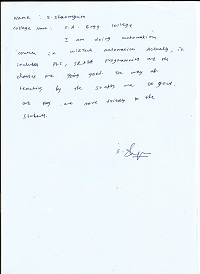 Name : S. Shanmugam
College name : S.A. Engg college
I am doing automation
course in automation Actually, it
includes PLC, SCADA programming and the
classes are going good. The way of
teaching by the staffs are so good.
are more to the
students.
S.